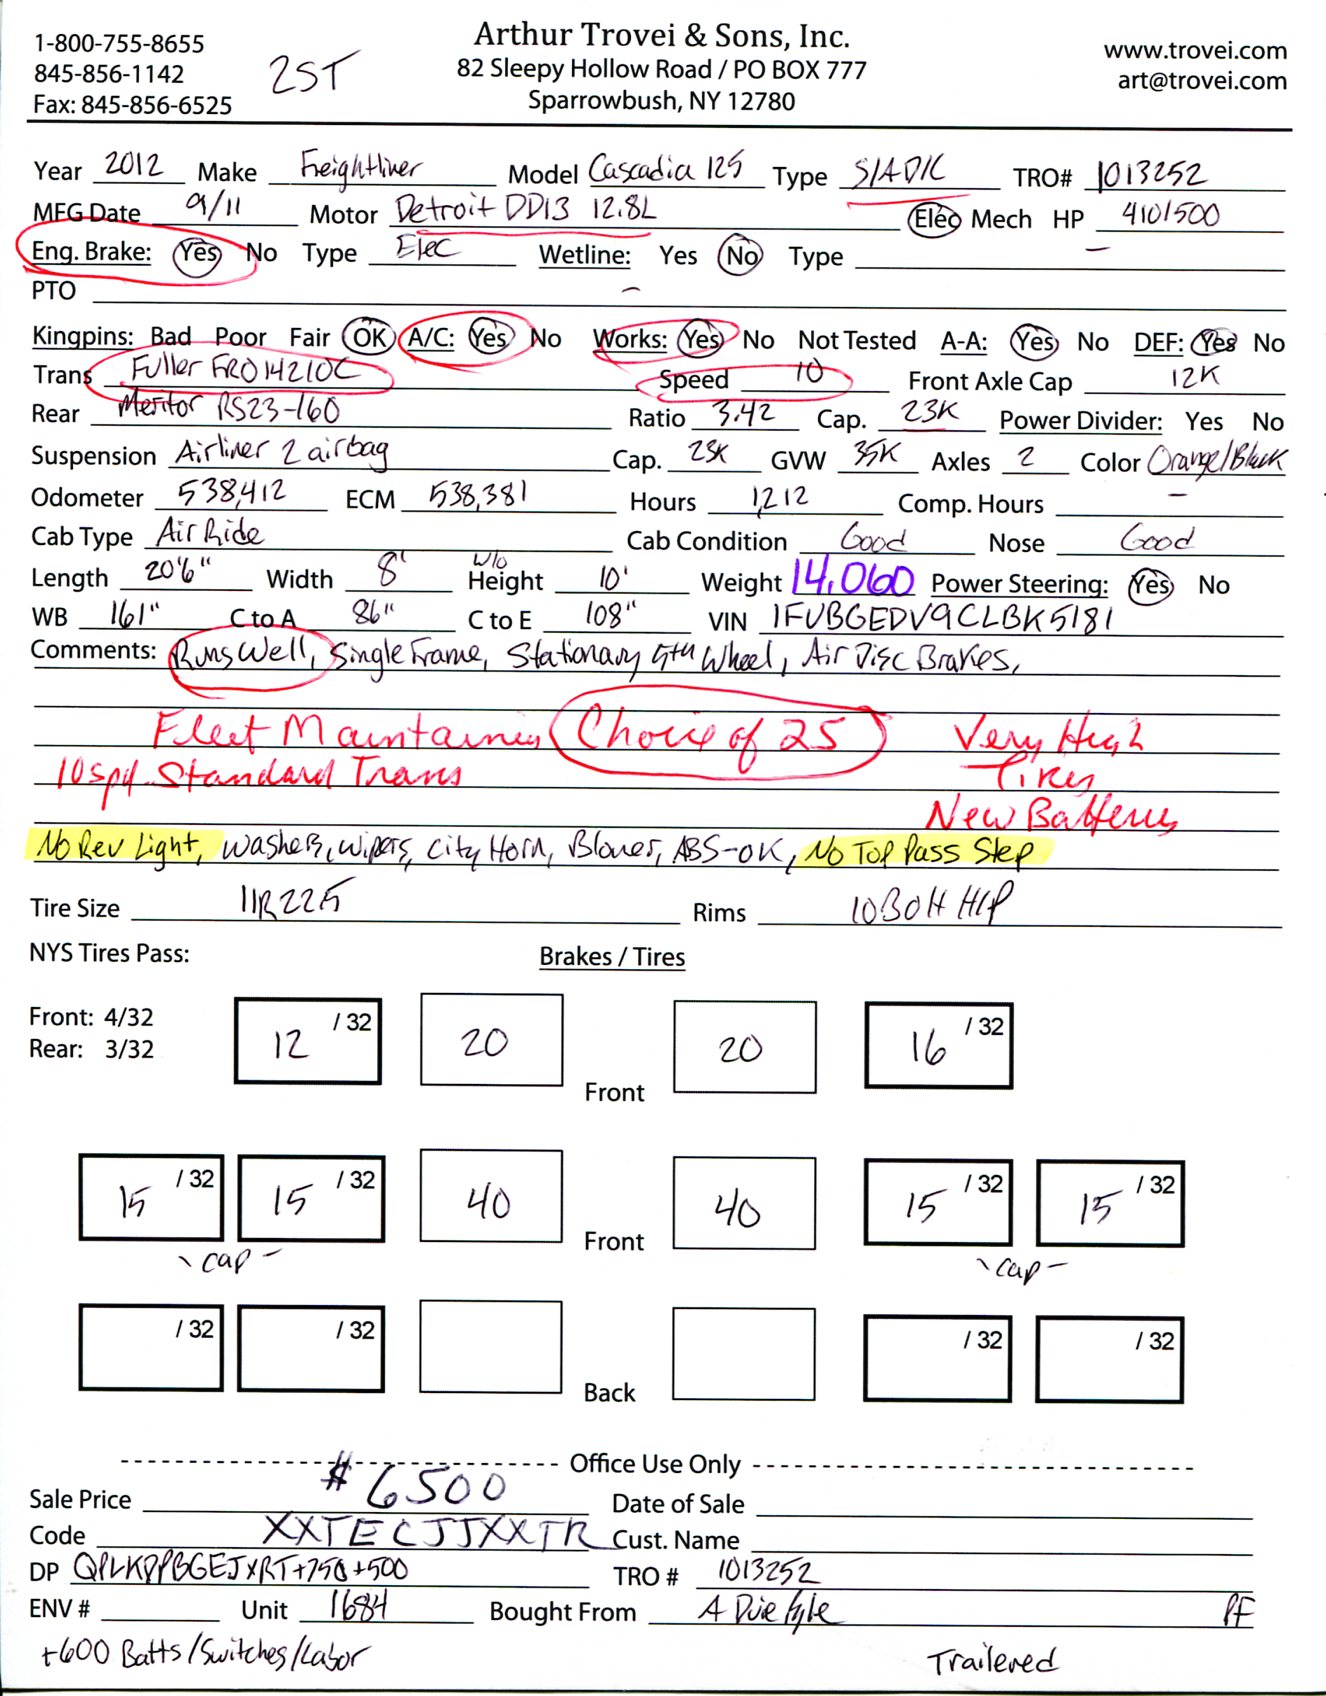 1-800-755-8655
845-856-1142
Fax: 845-856-6525
2ST
Arthur Trovei & Sons, Inc.
82 Sleepy Hollow Road / PO BOX 777
Sparrowbush, NY 12780
www.trovei.com
art@trovei.com
Year 2012 Make Freightliner Model Cascadia 125 Type S/A D/C TRO# 1013252
MFG Date 9/11 Motor Detroit DD13 12.8L Elec Mech HP 410/500
Eng. Brake: Yes No Type Elec Wetline: Yes No Type –
PTO –
Kingpins: Bad Poor Fair OK A/C: Yes No Works: Yes No Not Tested A-A: Yes No DEF: Yes No
Trans Fuller FRO14210C Speed 10 Front Axle Cap 12K
Rear Meritor RS23-160 Ratio 3.42 Cap. 23K Power Divider: Yes No
Suspension Airliner 2 airbag Cap. 23K GVW 35K Axles 2 Color Orange/Black
Odometer 538,412 ECM 538,381 Hours 1,212 Comp. Hours –
Cab Type Air Ride Cab Condition Good Nose Good
Length 20'6" Width 8' w/o Height 10' Weight 14,060 Power Steering: Yes No
WB 161" C to A 86" C to E 108" VIN 1FUBGEDV9CLBK5181
Comments: Runs Well, Single Frame, Stationary 5th Wheel, Air Disc Brakes,
Fleet Maintained Choice of 25 Very High
10spd. Standard Trans Tires
New Batterys
No Rev Light, washers, wipers, city Horn, Blower, ABS-OK, No Top Pass Step
Tire Size 11R22.5 Rims 10BOH HP
NYS Tires Pass: Brakes / Tires
Front: 4/32
Rear: 3/32
12 /32 20 Front 20 16 /32
15 /32 15 /32 40 Front 40 15 /32 15 /32
-cap- -cap-
/32 /32 Back /32 /32
Office Use Only
Sale Price $6500 Date of Sale
Code XXTECJJXXTR Cust. Name
DP QPLKPPBGEJXRT+750+500 TRO # 1013252
ENV # Unit 1684 Bought From A Duie Pyle PF
+600 Batts/Switches/Labor Trailered